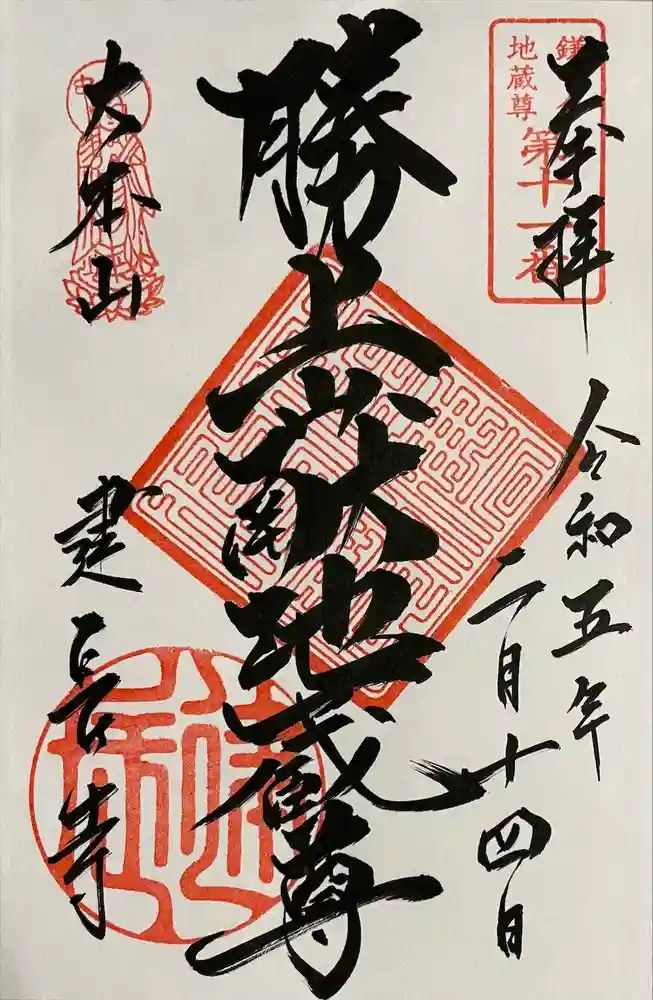 奉拝
鎌倉
地蔵尊
第十一番
令和五年
二月十四日
勝上嶽地蔵尊
大本山
建長寺